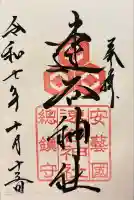 奉拝
安藝國
速谷神社
總鎮守
令和七年十月十三日